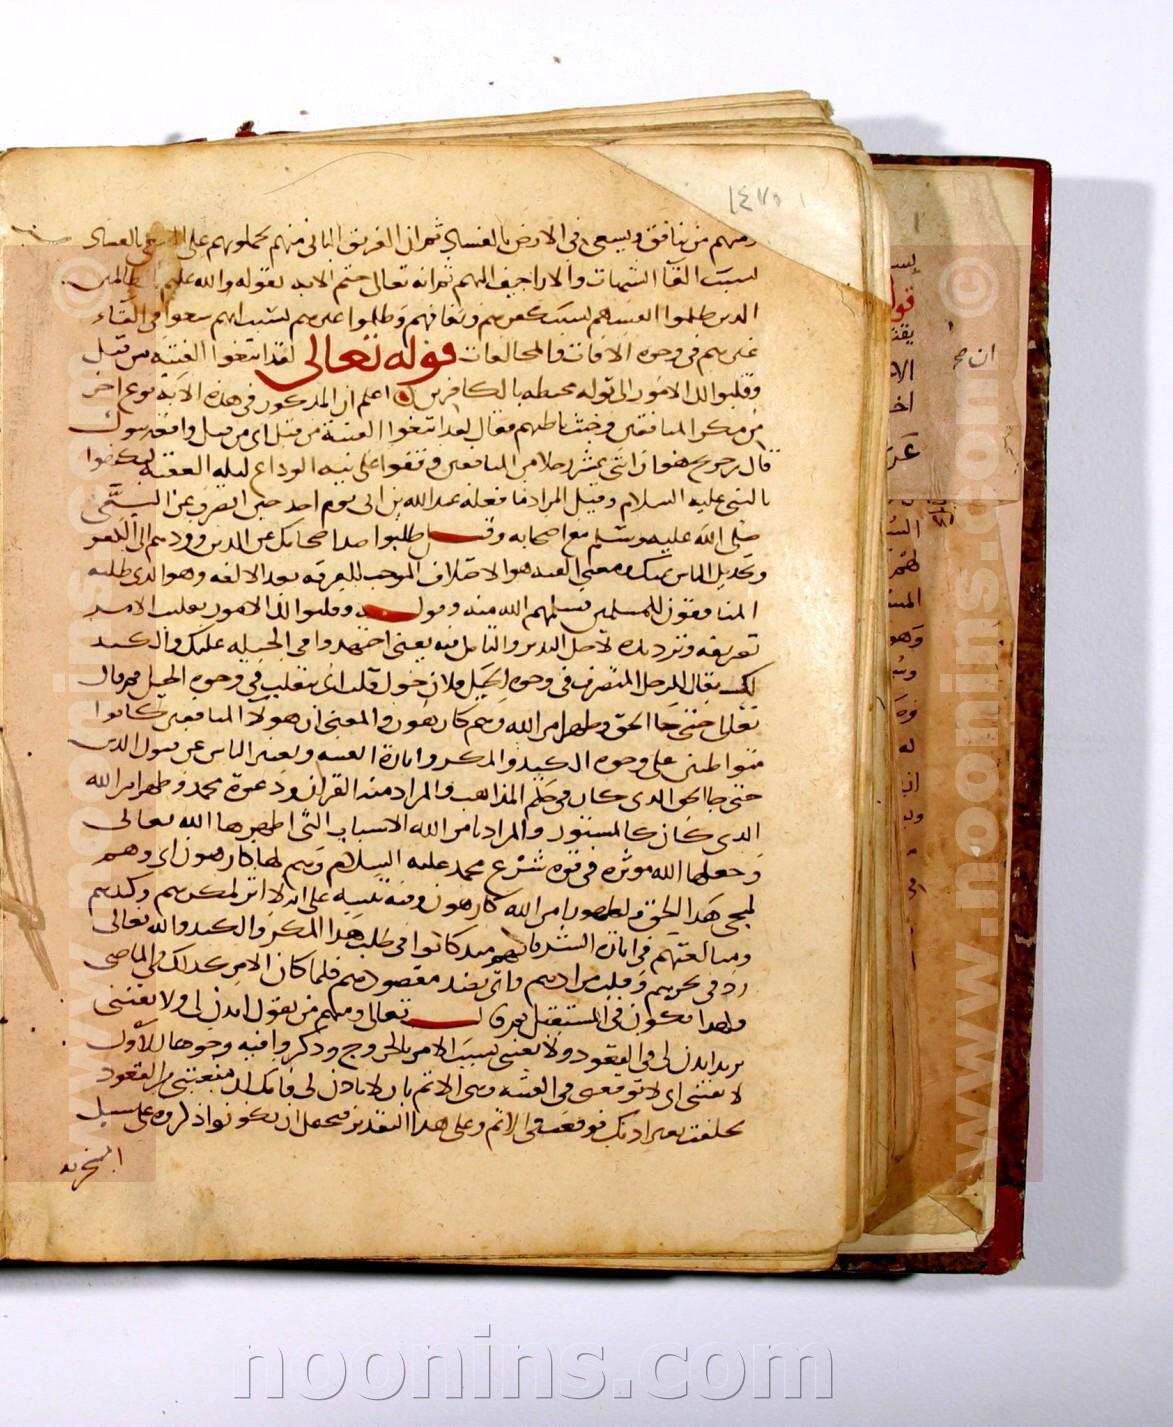 ١٤٧٥
ومنهم من ينافق ويسعى في الارض بالفساد ثم ان الفريق الثاني منهم يحملونهم على السعي بالفساد
لسبب القآ الشبهات والاراجيف اليهم ثم انه تعالى ختم الاية بقوله والله عليم بالظالمين
الذين ظلموا انفسهم بسبب كفرهم ونفاقهم وظلموا غيرهم بسبب انهم سعوا في القاء
غيرهم في وجوه الافات والمخالفات قوله تعالى لقد ابتغوا الفتنة من قبل
وقلبوا لك الامور الى قوله محيطه بالكافرين اعلم ان المذكور في هذه الاية نوع اخر
من مكر المنافقين وخبث باطنهم فقال لقد ابتغوا الفتنة من قبل اى من قبل واقعة تبوك
قال بن جريج هو ان اثنى عشر رجلا من المنافقين وقفوا على ثنية الوداع ليلة العقبة ليفتكوا
بالنبي عليه السلام وقيل المراد ما فعله عبدالله بن ابى يوم احد حين انصرف عن النبي
صلى الله عليه وسلم مع اصحابه وقيل طلبوا صد اصحابك عن الدين وردهم الى الكفر
وتخذيل الناس عنك ومعنى الفتنة هو الاختلاف الموجب للفرقة بعد الالفة وهو الذي طلبه
المنافقون للمسلمين فسلمهم الله منه وقوله وقلبوا لك الامور تقليب الامر
تصريفه وترديده لاجل التدبر والتامل فيه يعنى اجتهدوا في الحيلة عليك والكيد
لك يقال للرجل المتصرف في وجوه الحيل فلان حول قلب اى يتقلب في وجوه الحيل ثم قال
تعالى حتى جا الحق وظهر امر الله وهم كارهون والمعنى ان هولا المنافقين كانوا
مواظبين على وجوه الكيد والمكر واثارة الفتنة وتنفير الناس عن قبول الدين
حتى جا الحق الذي كان في حكم المذاهب والمراد منه القران ودعوة محمد وظهر امر الله
الذي كان كالمستور والمراد بامر الله الاسباب التى اظهرها الله تعالى
وجعلها الله موثرة في قوة شرع محمد عليه السلام وهم لها كارهون اى وهم
لمجى هذا الحق ولظهور امر الله كارهون وفيه تنبيه على انه لا اثر لمكرهم وكيدهم
ومبالغتهم في اثارة الشر فانهم منذ كانوا في طلب هذا المكر والكيد والله تعالى
رد في نحرهم وقلب مرادهم واتى بضد مقصودهم فلما كان الامر كذلك في الماضى
فهذا يكون في المستقبل ثم قال تعالى ومنهم من يقول ايذن لى ولا تفتنى
يريد ايذن لى في القعود ولا تفتنى بسبب الامر بالخروج وذكروا فيه وجوها الاول
لا تفتنى اى لا توقعنى في الفتنة وهى الاثم بان لا تاذن لى فانك ان منعتنى من القعود
تخلفت بغير اذنك فوقعت في الاثم وعلى هذا التقدير فيحتمل ان يكونوا ذكروه على سبيل
السخرية
ان صح
www.noonins.com
www.noonins.com
noonins.com